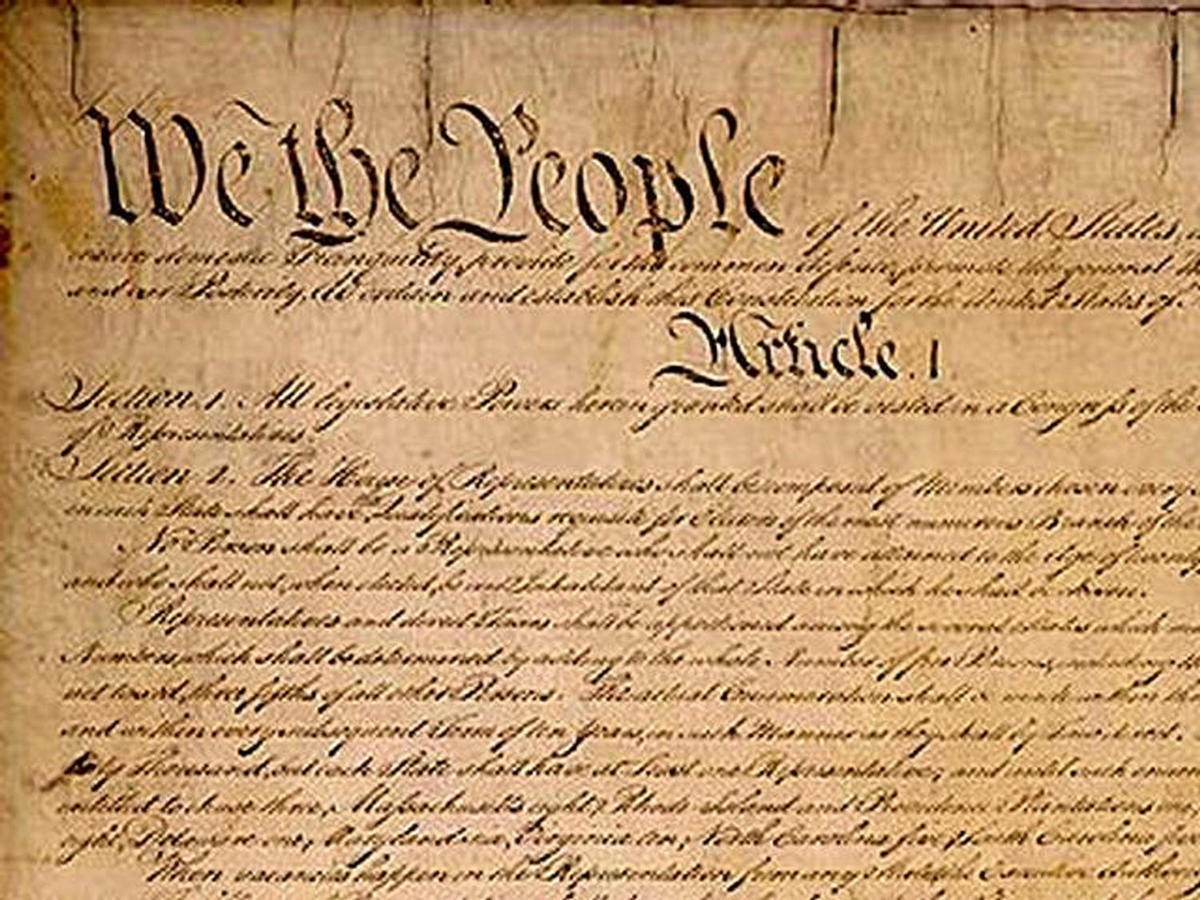 We the People of the United States,
insure domestic Tranquility, provide for the common defence, promote the general
and our Posterity, do ordain and establish this Constitution for the United States of
Article. I
Section. 1. All legislative Powers herein granted shall be vested in a Congress of the
of Representatives.
Section. 2. The House of Representatives shall be composed of Members chosen every
in each State shall have the Qualifications requisite for Electors of the most numerous Branch of the
No Person shall be a Representative who shall not have attained to the Age of twenty
and who shall not, when elected, be an Inhabitant of that State in which he shall be chosen.
Representatives and direct Taxes shall be apportioned among the several States which
Numbers, which shall be determined by adding to the whole Number of free Persons, including
not taxed, three fifths of all other Persons. The actual Enumeration shall be made within
and within every subsequent Term of ten Years, in such Manner as they shall by Law direct.
thirty Thousand, but each State shall have at Least one Representative; and until such
entitled to chuse three, Massachusetts eight, Rhode Island and Providence Plantations one
eight, Delaware one, Maryland six, Virginia ten, North Carolina five, South Carolina
When vacancies happen in the Representation from any State, the Executive